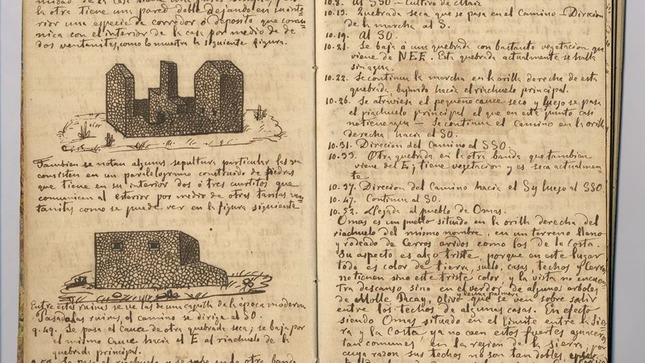 la otra tiene un pared
rior una especie de corredor ó deposito que comu-
nica con el interior de la casa por medio de
dos ventanitas, como lo muestra la siguiente figura.
Tambien se notan algunas sepulturas particulares
consisten en un paralelogramo construido de piedras
que tiene en su interior dos ó tres cuartitos que
comunican al exterior por medio de otras tantas ven-
tanitas como se puede ver en la figura siguiente
Entre estas ruinas se ve las de una capilla de la época moderna
Pasadas las ruinas el camino se dirije al SO.
9.49. Se pasa el cauce de otra quebrada seca, se baja por
el mismo cauce hácia el E al riachuelo de la
quebrada principal.
Al SSO - Cultivo de Maiz
10.13. Quebrada seca que se pasa en el Camino - Direccion
de la marcha al S.
10.19. Al SO.
10.21. Se baja á una quebrada con bastante vegetacion que
viene de NEE. Esta quebrada actualmente se halla
sin agua.
10.22. Se continua la marcha en la orilla derecha de esta
quebrada, bajando hácia el riachuelo principal.
10.26. Se atraviesa el pequeño cauce seco y luego se pasa
el riachuelo principal el que en este punto casi
no tiene agua - Se continua el Camino en la orilla
derecha hácia el SO.
10.31. Direccion del Camino al SSO
10.33. Otra quebrada en la otra banda que tambien
viene del E; tiene vegetacion y es seca actualmen-
te.
10.37. Direccion del Camino hácia el S y luego al SSO.
10.47. Continua al SO.
10.52. Llegada al pueblo de Omas.
Omas es un pueblo situado en la orilla derecha del
riachuelo del mismo nombre, en un terreno llano
y rodeado de Cerros áridos como los de la Costa.
Su aspecto es algo triste, porque en este lugar
todo es color de tierra, suelo, casas, techos y cerros
no tienen sino este triste color y la vista no encuen-
tra descanso sino en el verdor de algunos arboles
de Molle, Pacay, Olivo que se ven sobre salir
entre los techos de algunas casas. En efecto
siendo Omas situado en el limite entre la Sier-
ra y la Costa ya no caen aguaceros
tan comunes en la region de la sierra, por
cuya razon sus techos no son tan